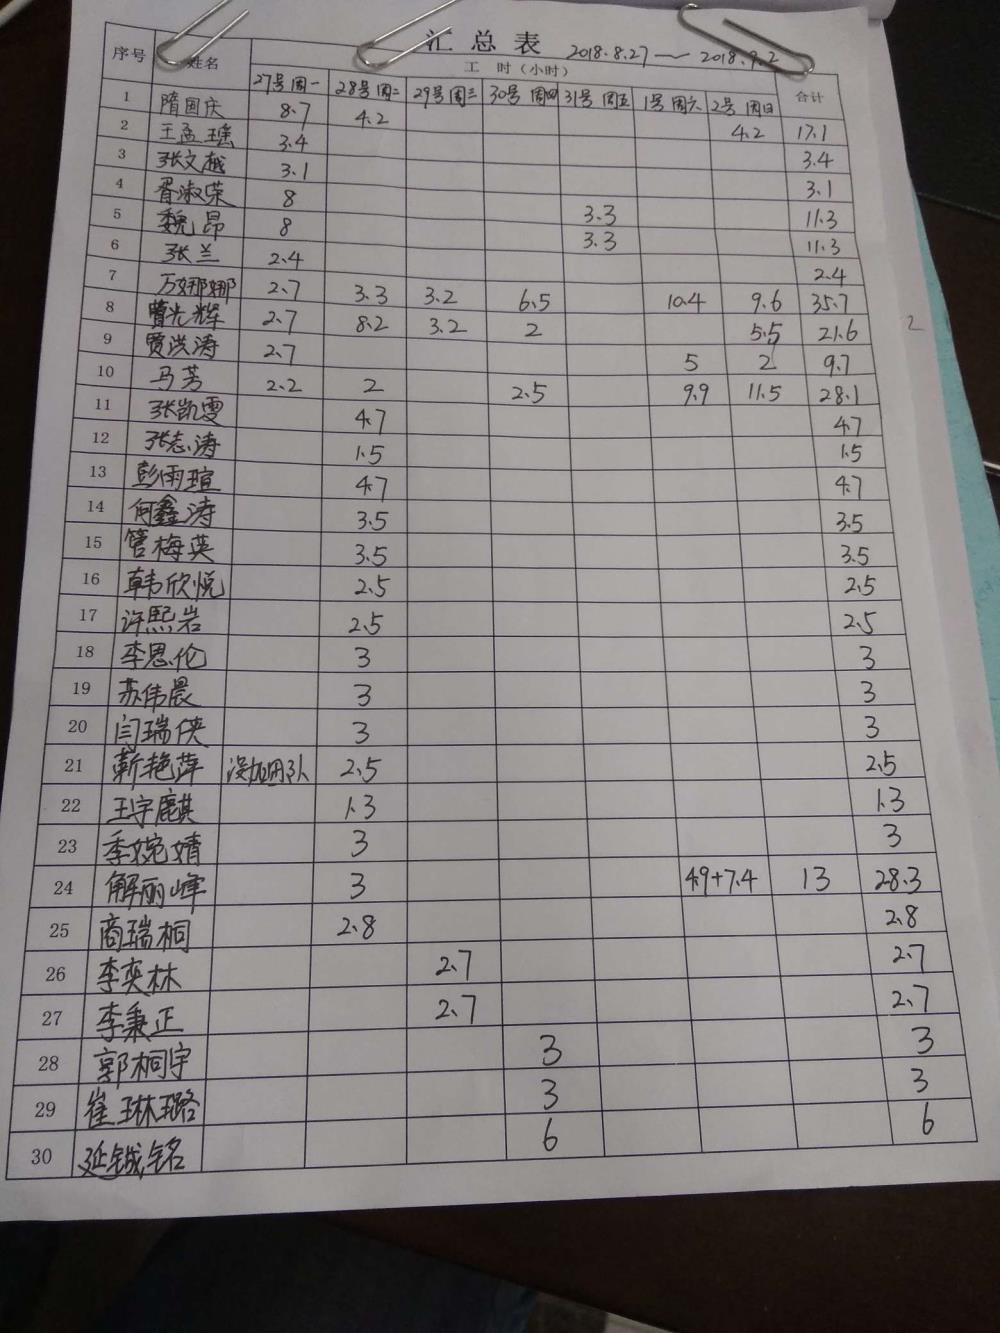 汇 总 表 2018.8.27 — 2018.9.2
序号 姓名 工 时（小时） 合计
27号周一 28号周二 29号周三 30号周四 31号周五 1号周六 2号周日
1 隋国庆 8.7 4.2 4.2 17.1
2 王孟瑶 3.4 3.4
3 张文越 3.1 3.1
4 胥淑荣 8 3.3 11.3
5 魏昂 8 3.3 11.3
6 张兰 2.4 2.4
7 万娜娜 2.7 3.3 3.2 6.5 10.4 9.6 35.7
8 曹光辉 2.7 8.2 3.2 2 5.5 21.6
2
9 贾洪涛 2.7 5 2 9.7
10 马芳 2.2 2 2.5 9.9 11.5 28.1
11 张凯雯 4.7 4.7
12 张志涛 1.5 1.5
13 彭雨瑄 4.7 4.7
14 何鑫涛 3.5 3.5
15 管梅英 3.5 3.5
16 韩欣悦 2.5 2.5
17 许熙岩 2.5 2.5
18 李恩伦 3 3
19 苏伟晨 3 3
20 闫瑞侠 3 3
21 靳艳萍 没加团队 2.5 2.5
22 王宇麒 1.3 1.3
23 季婉婧 3 3
24 解丽峰 3 4.9+7.4 13 28.3
25 商瑞桐 2.8 2.8
26 李奕林 2.7 2.7
27 李秉正 2.7 2.7
28 郭桐宇 3 3
29 崔琳璐 3 3
30 延铖铭 6 6